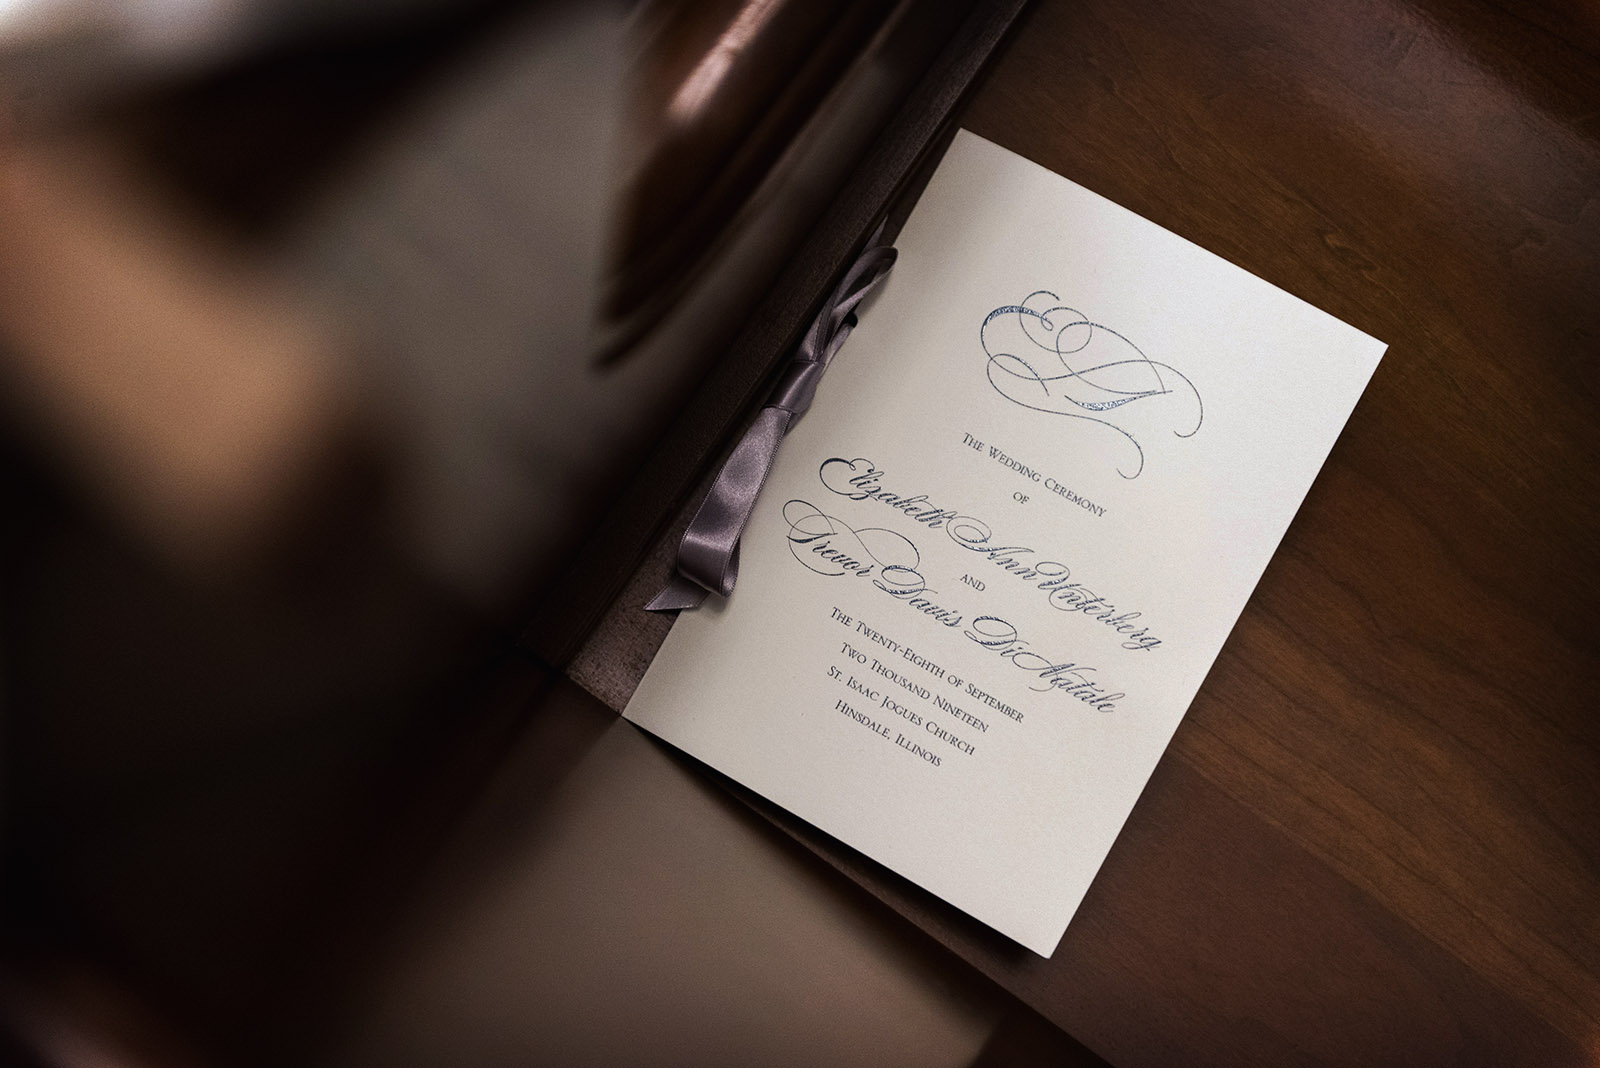 ET
The Wedding Ceremony
of
Elizabeth Ann Unterberg
and
Trevor Davis DiNatale
The Twenty-Eighth of September
Two Thousand Nineteen
St. Isaac Jogues Church
Hinsdale, Illinois